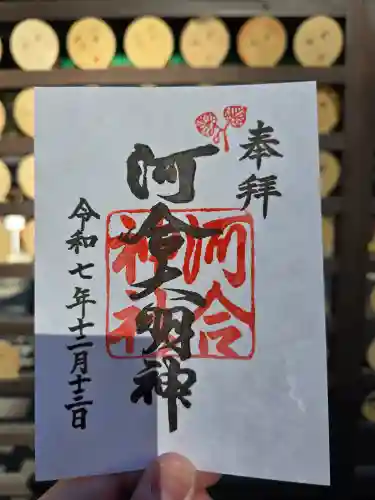 奉拝
河合大明神
河合神社
令和七年十二月十三日